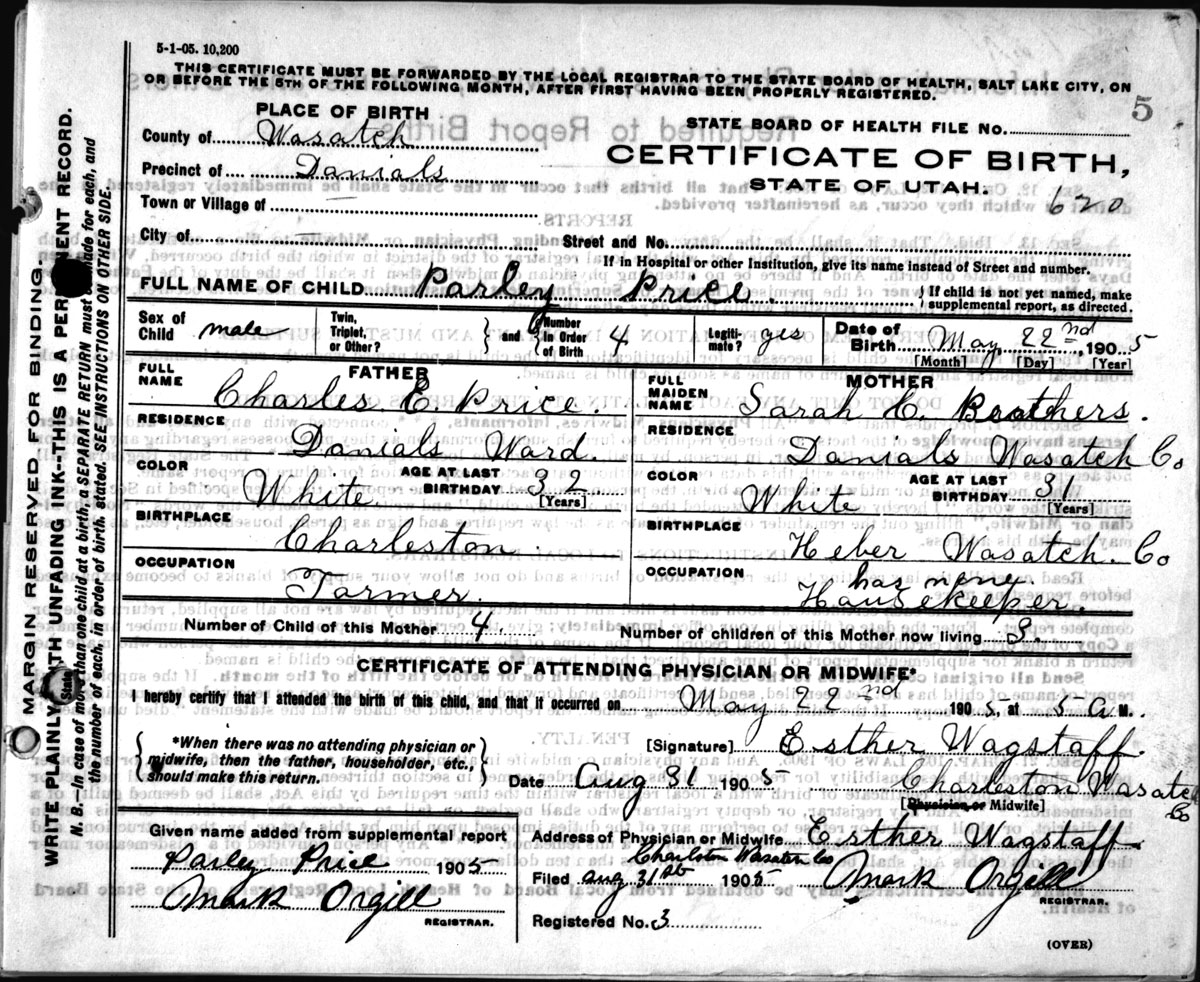 5-1-05. 10,200
THIS CERTIFICATE MUST BE FORWARDED BY THE LOCAL REGISTRAR TO THE STATE BOARD OF HEALTH, SALT LAKE CITY, ON
OR BEFORE THE 5TH OF THE FOLLOWING MONTH, AFTER FIRST HAVING BEEN PROPERLY REGISTERED.
5
PLACE OF BIRTH
STATE BOARD OF HEALTH FILE NO.
County of Wasatch
CERTIFICATE OF BIRTH,
Precinct of Danials
STATE OF UTAH.
Town or Village of
620
City of Street and No.
If in Hospital or other Institution, give its name instead of Street and number.
FULL NAME OF CHILD Parley Price. { If child is not yet named, make supplemental report, as directed.
Sex of Child male Twin, Triplet, or Other? } and { Number in Order of Birth 4 Legitimate? yes Date of Birth May 22nd, 1905
[Month] [Day] [Year]
FATHER MOTHER
FULL NAME Charles E. Price. FULL MAIDEN NAME Sarah C. Brothers.
RESIDENCE Danials Ward. RESIDENCE Danials Wasatch Co
COLOR White AGE AT LAST BIRTHDAY 32 [Years] COLOR White AGE AT LAST BIRTHDAY 31 [Years]
BIRTHPLACE Charleston. BIRTHPLACE Heber Wasatch. Co
OCCUPATION Farmer. OCCUPATION has none Housekeeper.
Number of Child of this Mother 4. Number of children of this Mother now living 3.
CERTIFICATE OF ATTENDING PHYSICIAN OR MIDWIFE*
I hereby certify that I attended the birth of this child, and that it occurred on May 22nd 1905, at 5 A M.
{ *When there was no attending physician or midwife, then the father, householder, etc., should make this return. }
[Signature] Esther Wagstaff.
Date Aug 31 1905 Charleston Wasatch Co
[Physician or Midwife]
Given name added from supplemental report
Parley Price 1905
Mark Orgill
REGISTRAR.
Address of Physician or Midwife Esther Wagstaff.
Charlston Wasatch Co
Filed Aug 31st 1905 Mark Orgill
REGISTRAR.
Registered No. 3
(OVER)
MARGIN RESERVED FOR BINDING
WRITE PLAINLY WITH UNFADING INK--THIS IS A PERMANENT RECORD.
N. B.—In case of more than one child at a birth, a SEPARATE RETURN must be made for each, and
the number of each, in order of birth, stated. SEE INSTRUCTIONS ON OTHER SIDE.